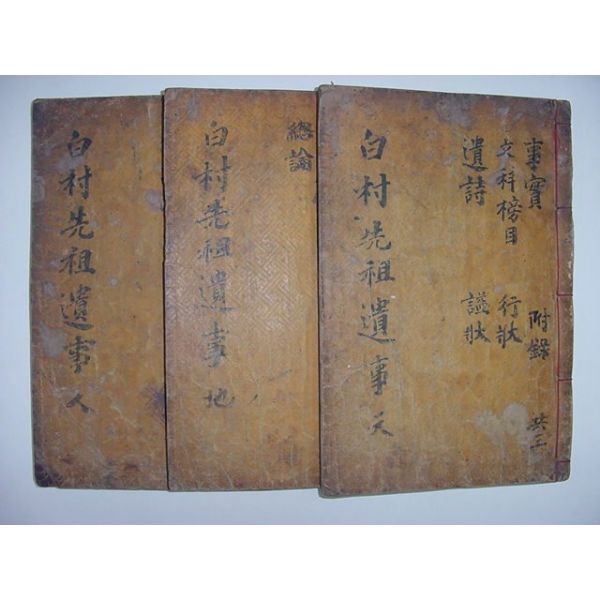 事實 附錄 共三
文科榜目 行狀
遺詩 諡狀
白村先祖遺事 天
總論
白村先祖遺事 地
白村先祖遺事 人